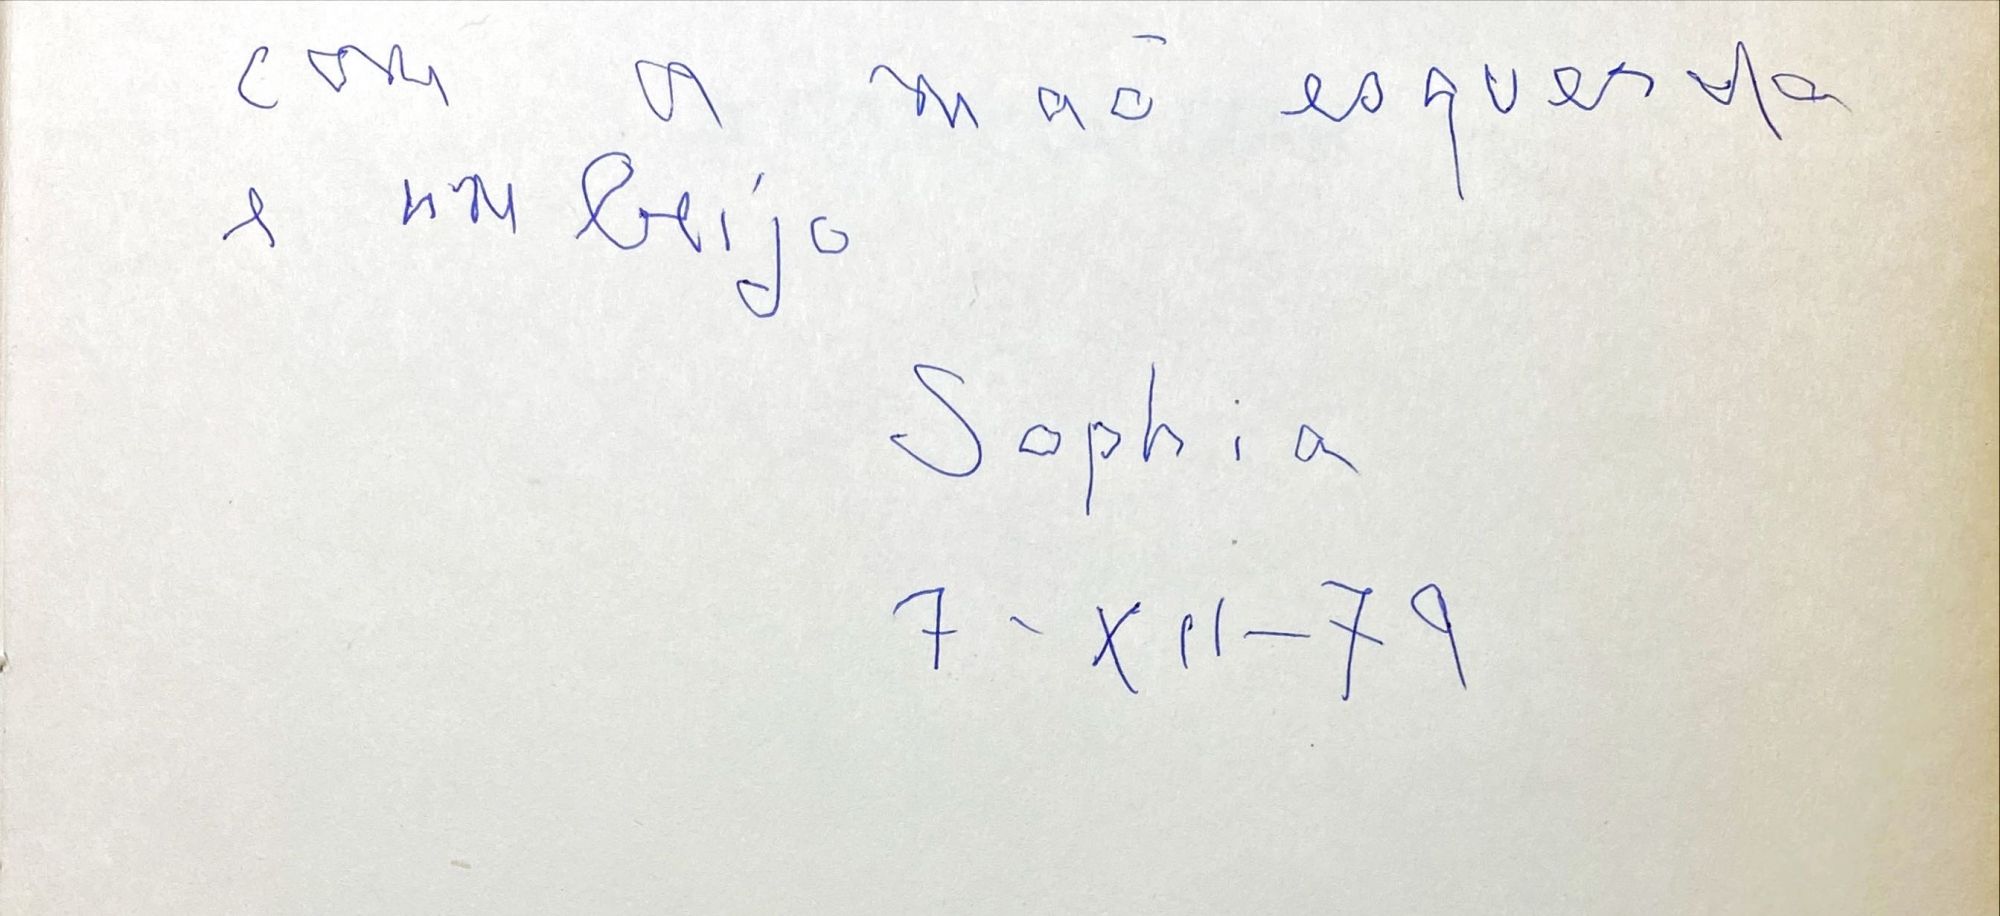 com a mão esquerda
e um beijo
Sophia
7-XII-79